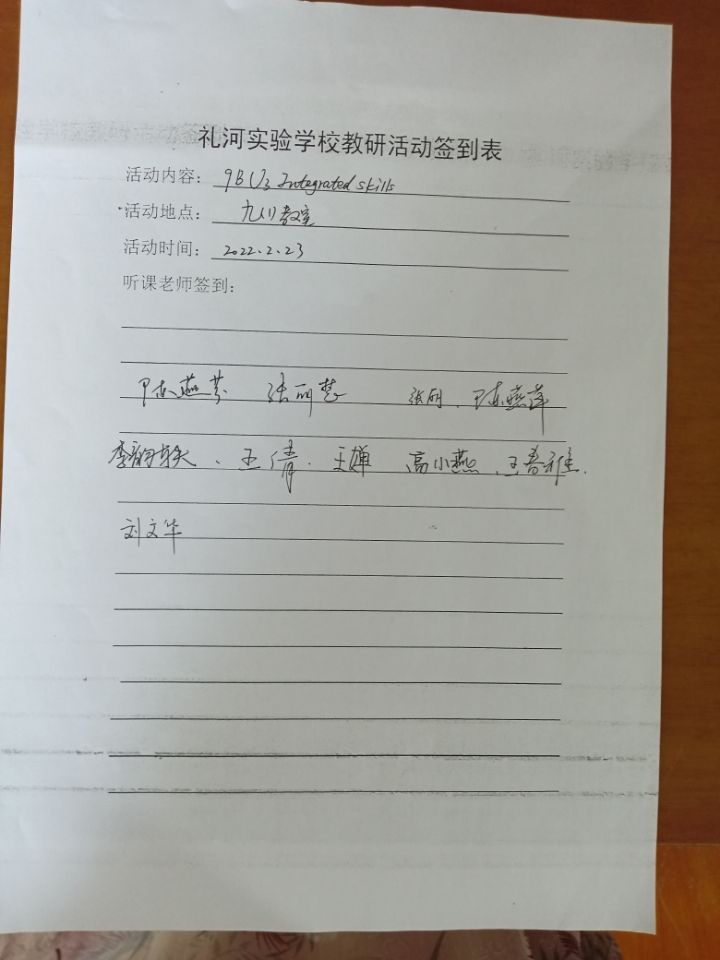 礼河实验学校教研活动签到表
活动内容：9B U3 Integrated skills
活动地点：九(1)教室
活动时间：2022.2.23
听课老师签到：
陈燕芬 张丽楚 张明、陈燕萍
李 、王倩、王婵 高小燕、王春雅.
刘文华